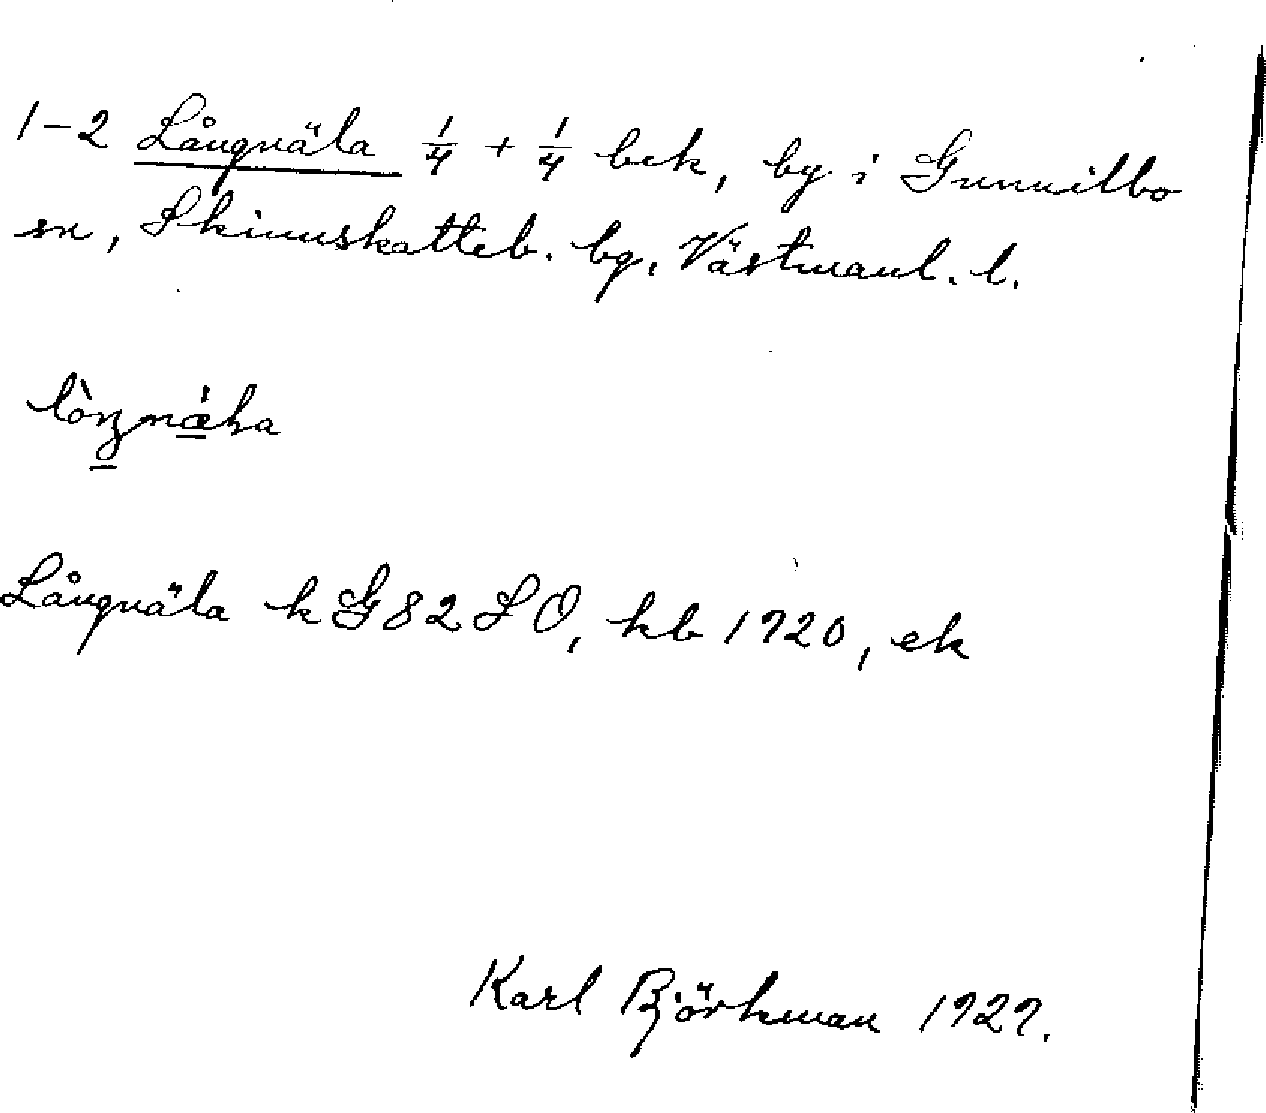 1-2 Långnäla 1/4 + 1/4 bek, by i Gunnilbo
sn, Skinnskatteb. bg, Västmanl. l.
Långnäla k G 82 SO, kb 1920, ek
Karl Björkman 1927.